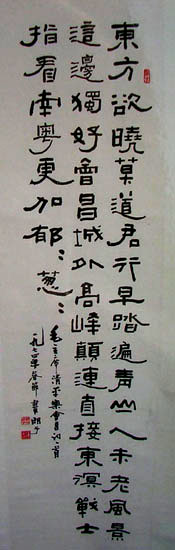 東方欲曉莫道君行早踏遍青山人未老風景
這邊獨好會昌城外高峰顛連直接東溟戰士
指看南粵更加郁〻葱〻
毛主席清平樂會昌詞一首
一九七四年春節書